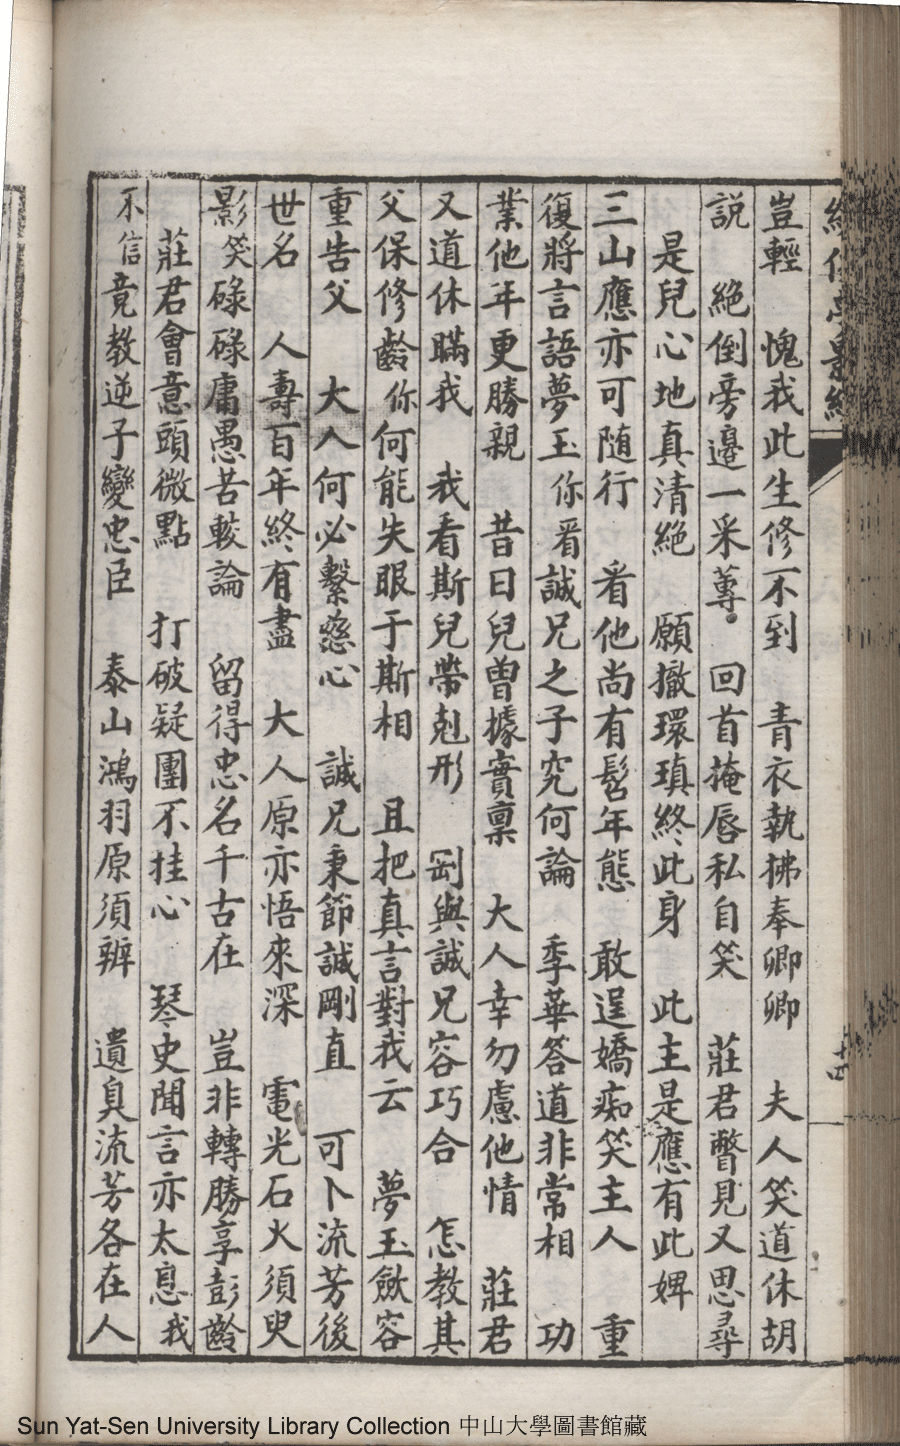 豈輕　愧我此生修不到　青衣執拂奉卿卿　夫人笑道休胡
説　絶倒旁邊一采蓴。　回首掩唇私自笑　莊君瞥見又思尋
是兒心地真清絶　願撤環瑱終此身　此主是應有此婢
三山應亦可随行　看他尚有髫年態　敢逞嬌痴笑主人　重
復將言語夢玉你看誠兄之子究何論　季華答道非常相　功
業他年更勝親　昔日兒曾據實稟　大人幸勿慮他情　莊君
又道休瞞我　我看斯兒帶剋形　剛與誠兄容巧合　怎教其
父保修齡你何能失眼于斯相　且把真言對我云　夢玉斂容
重告父　大人何必繫慈心　誠兄秉節誠剛直　可卜流芳後
世名　人壽百年終有盡　大人原亦悟來深　電光石火須臾
影笑碌碌庸愚苦較論　留得忠名千古在　豈非轉勝享彭齡
莊君會意頭微點　打破疑團不挂心　琴史聞言亦太息我
不信竟教逆子變忠臣　泰山鴻羽原須辨　遺臭流芳各在人
Sun Yat-Sen University Library Collection 中山大學圖書館藏